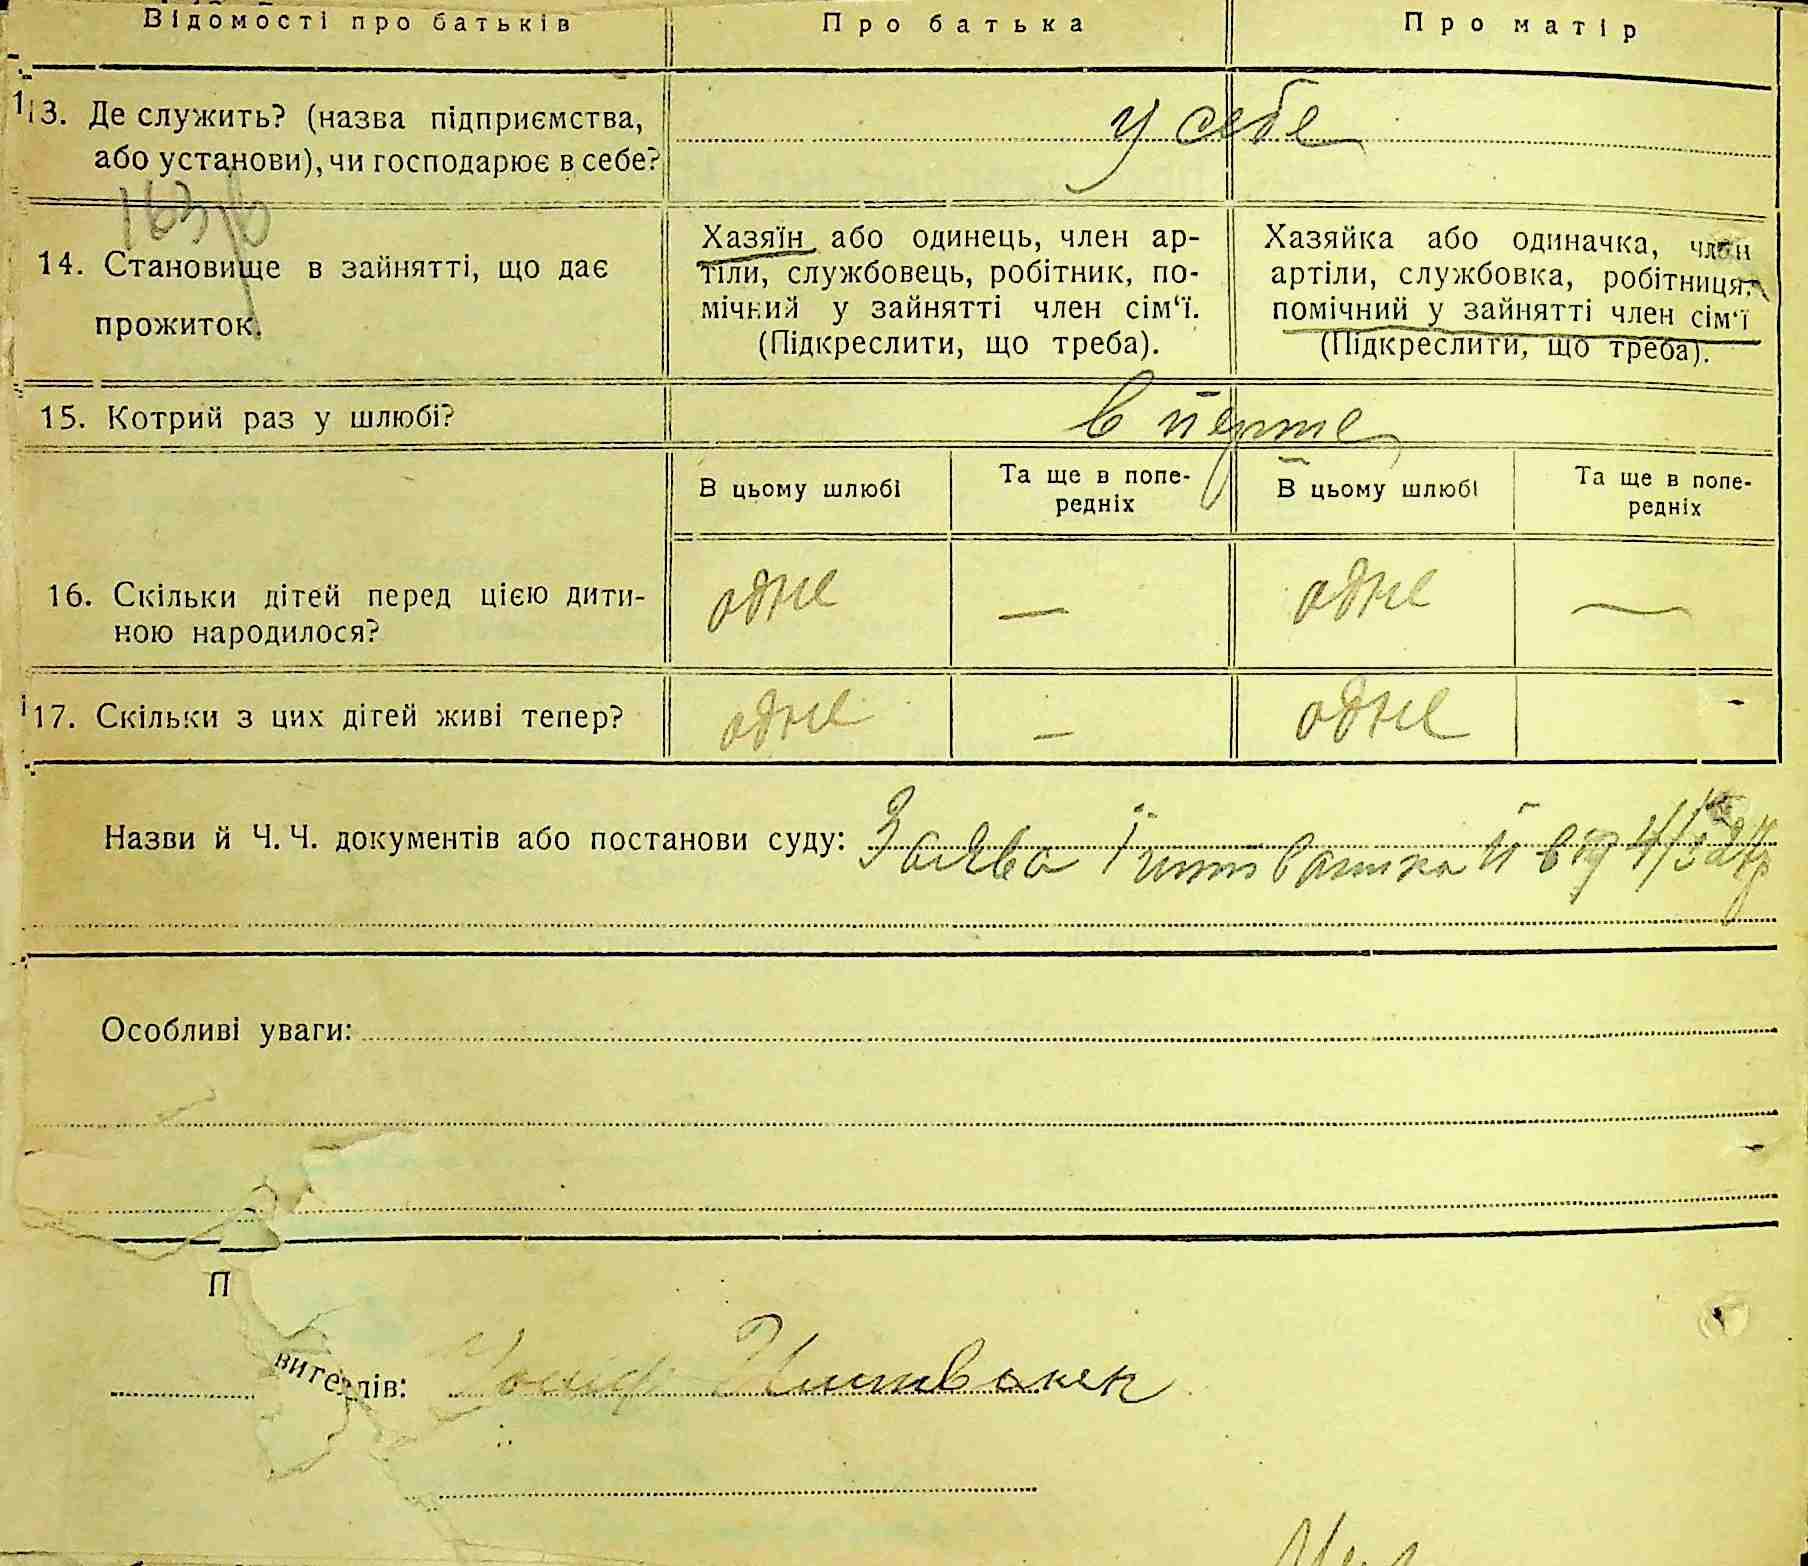 Відомості про батьків
Про батька
Про матір
13. Де служить? (назва підприємства,
або установи), чи господарює в себе?
у себе
14. Становище в зайнятті, що дає
прожиток.
Хазяїн або одинець, член ар-
тіли, службовець, робітник, по-
мічний у зайнятті член сім‘ї.
(Підкреслити, що треба).
Хазяйка або одиначка, член
артіли, службовка, робітниця,
помічний у зайнятті член сім‘ї
(Підкреслити, що треба).
15. Котрий раз у шлюбі?
в перше
В цьому шлюбі
Та ще в попе-
редніх
В цьому шлюбі
Та ще в попе-
редніх
16. Скільки дітей перед цією дити-
ною народилося?
одне — одне —
17. Скільки з цих дітей живі тепер?
одне — одне -
Назви й Ч. Ч. документів або постанови суду: Заява
Особливі уваги:
П